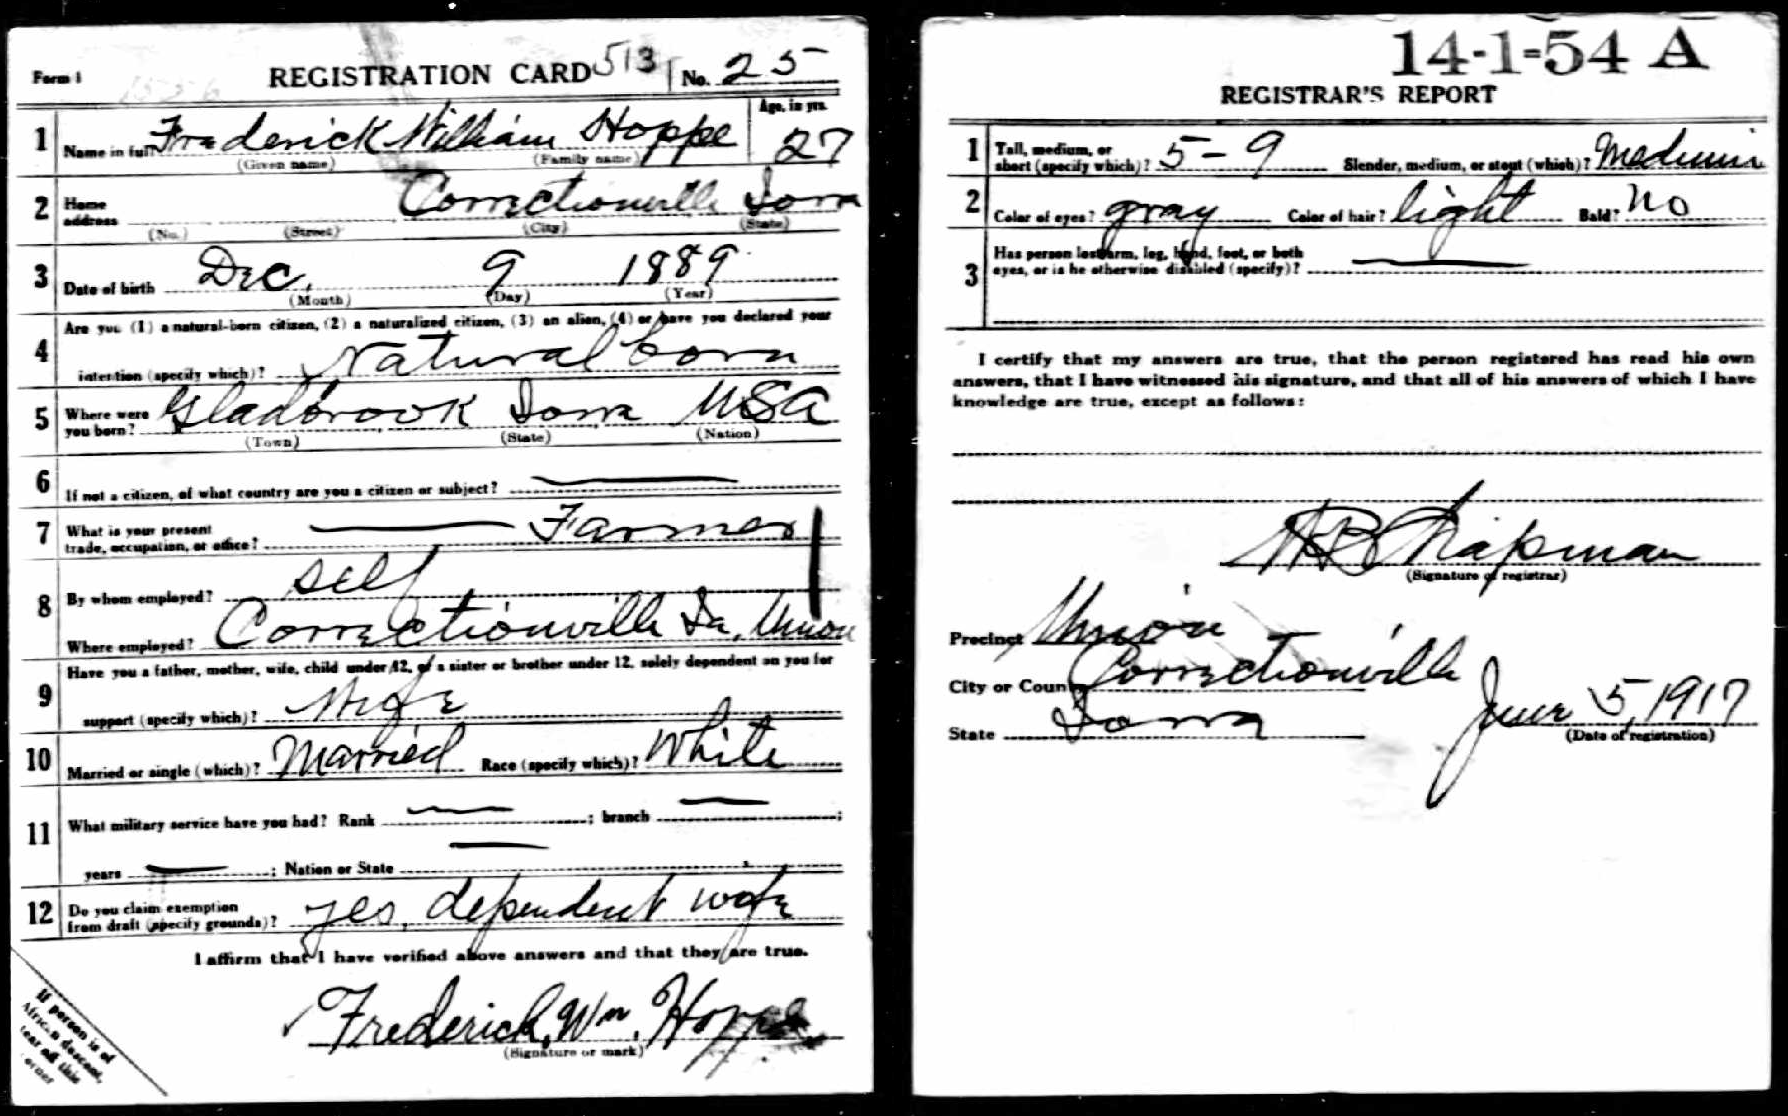 Form 1 1526 REGISTRATION CARD 513 No. 25
1 Name in full Frederick William Hoppe Age, in yrs. 27
(Given name) (Family name)
2 Home address Correctionville Iowa
(No.) (Street) (City) (State)
3 Date of birth Dec. 9 1889
(Month) (Day) (Year)
Are you (1) a natural-born citizen, (2) a naturalized citizen, (3) an alien, (4) or have you declared your
4 intention (specify which)? Natural born
5 Where were you born? Gladbrook Iowa USA
(Town) (State) (Nation)
6 If not a citizen, of what country are you a citizen or subject?
7 What is your present trade, occupation, or office? Farmer
8 By whom employed? self
Where employed? Correctionville Ia, Union
Have you a father, mother, wife, child under 12, or a sister or brother under 12, solely dependent on you for
9 support (specify which)? Wife
10 Married or single (which)? Married Race (specify which)? White
11 What military service have you had? Rank ; branch ;
years ; Nation or State
12 Do you claim exemption from draft (specify grounds)? yes, dependent wife
I affirm that I have verified above answers and that they are true.
Frederick, Wm. Hoppe
(Signature or mark)
If person is of
African descent,
tear off this
corner
14-1-54 A
REGISTRAR'S REPORT
1 Tall, medium, or short (specify which)? 5-9 Slender, medium, or stout (which)? Medium
2 Color of eyes? gray Color of hair? light Bald? No
3 Has person lost arm, leg, hand, foot, or both
eyes, or is he otherwise disabled (specify)?
I certify that my answers are true, that the person registered has read his own
answers, that I have witnessed his signature, and that all of his answers of which I have
knowledge are true, except as follows:
Chapman
(Signature of registrar)
Precinct Union
City or County Correctionville
State Iowa June 5, 1917
(Date of registration)